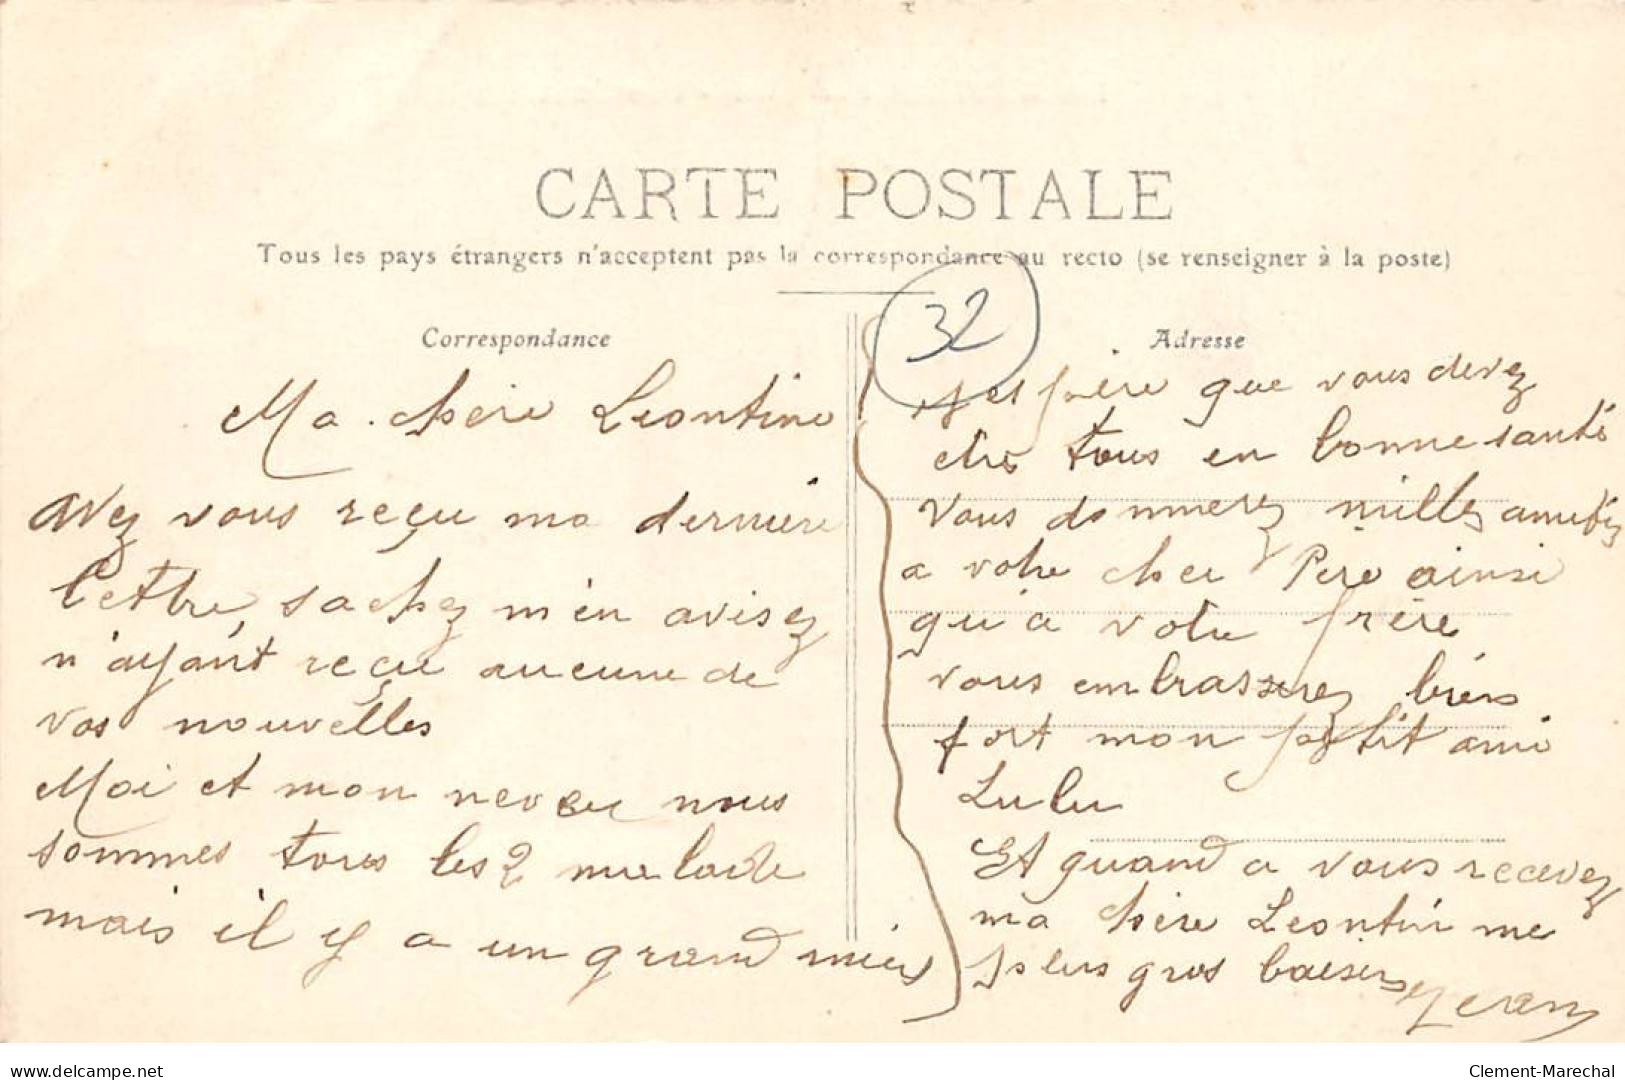 CARTE POSTALE
Tous les pays étrangers n'acceptent pas la correspondance au recto (se renseigner à la poste)
Correspondance
Ma chère Leontine
avez vous reçu ma dernière
lettre, sachez m'en avisez
n'ayant reçu aucune de
vos nouvelles
Moi et mon neveu nous
sommes tous les 2 malade
mais il y a un grand mieux
32
Adresse
J'espère que vous devez
être tous en bonne santé
Vous donnerez milles amitiés
a votre cher Père ainsi
qu'a votre frère
vous embrasserez bien
fort mon petit ami
Lulu
Et quand a vous recevez
ma chère Leontine mes
plus gros baisers Jean
www.delcampe.net
Clement-Marechal